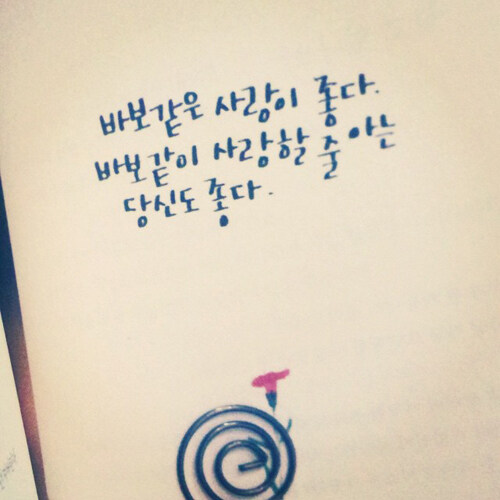 바보같은 사랑이 좋다.
바보같이 사랑할 줄 아는
당신도 좋다.